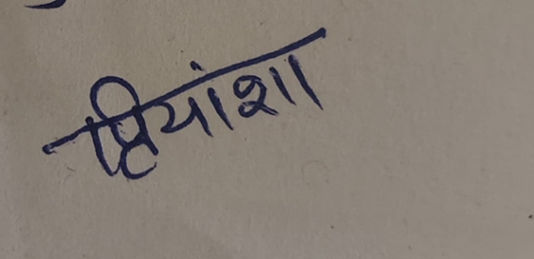 प्रियांशा